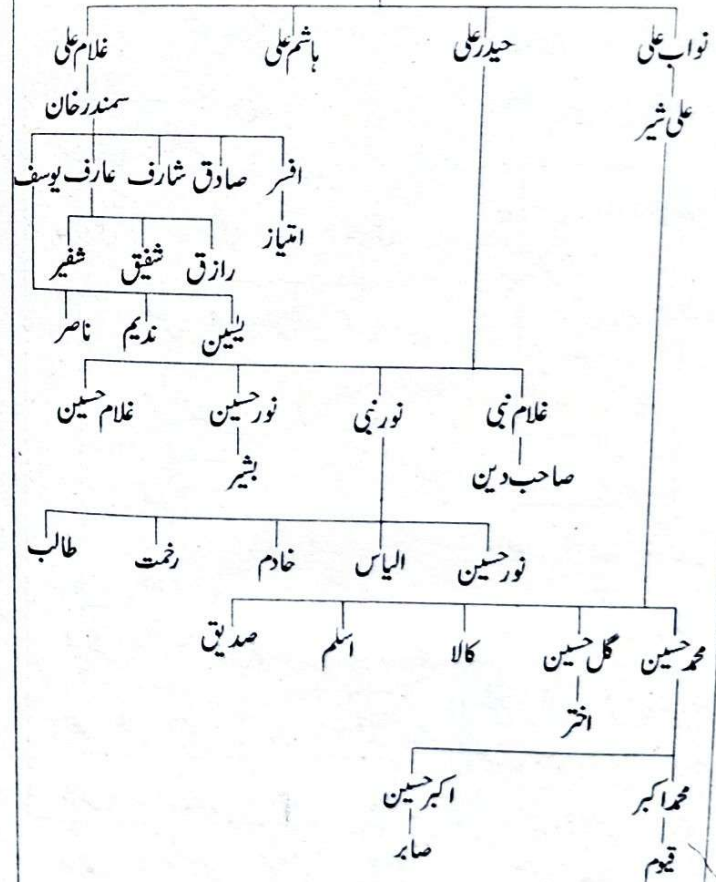 نواب علی حیدر علی ہاشم علی غلام علی
علی شیر سمندر خان
افسر صادق شارف عارف یوسف
امتیاز
رازق شفیق شفیر
یٰسین ندیم ناصر
غلام نبی نور نبی نور حسین غلام حسین
صاحب دین بشیر
نور حسین الیاس خادم رحمت طالب
محمد حسین گل حسین کالا اسلم صدیق
اختر
محمد اکبر اکبر حسین
قیوم صابر